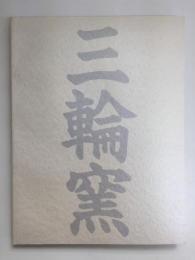 三輪窯